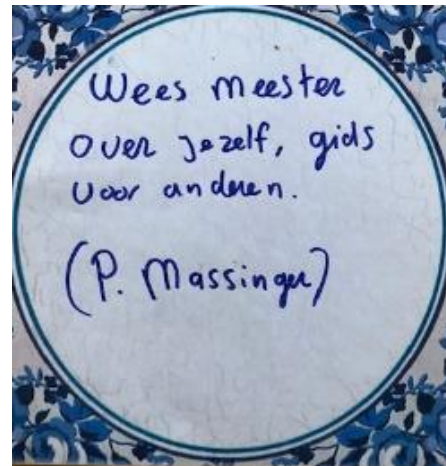 Wees meester
over jezelf, gids
voor anderen.
(P. Massinger)